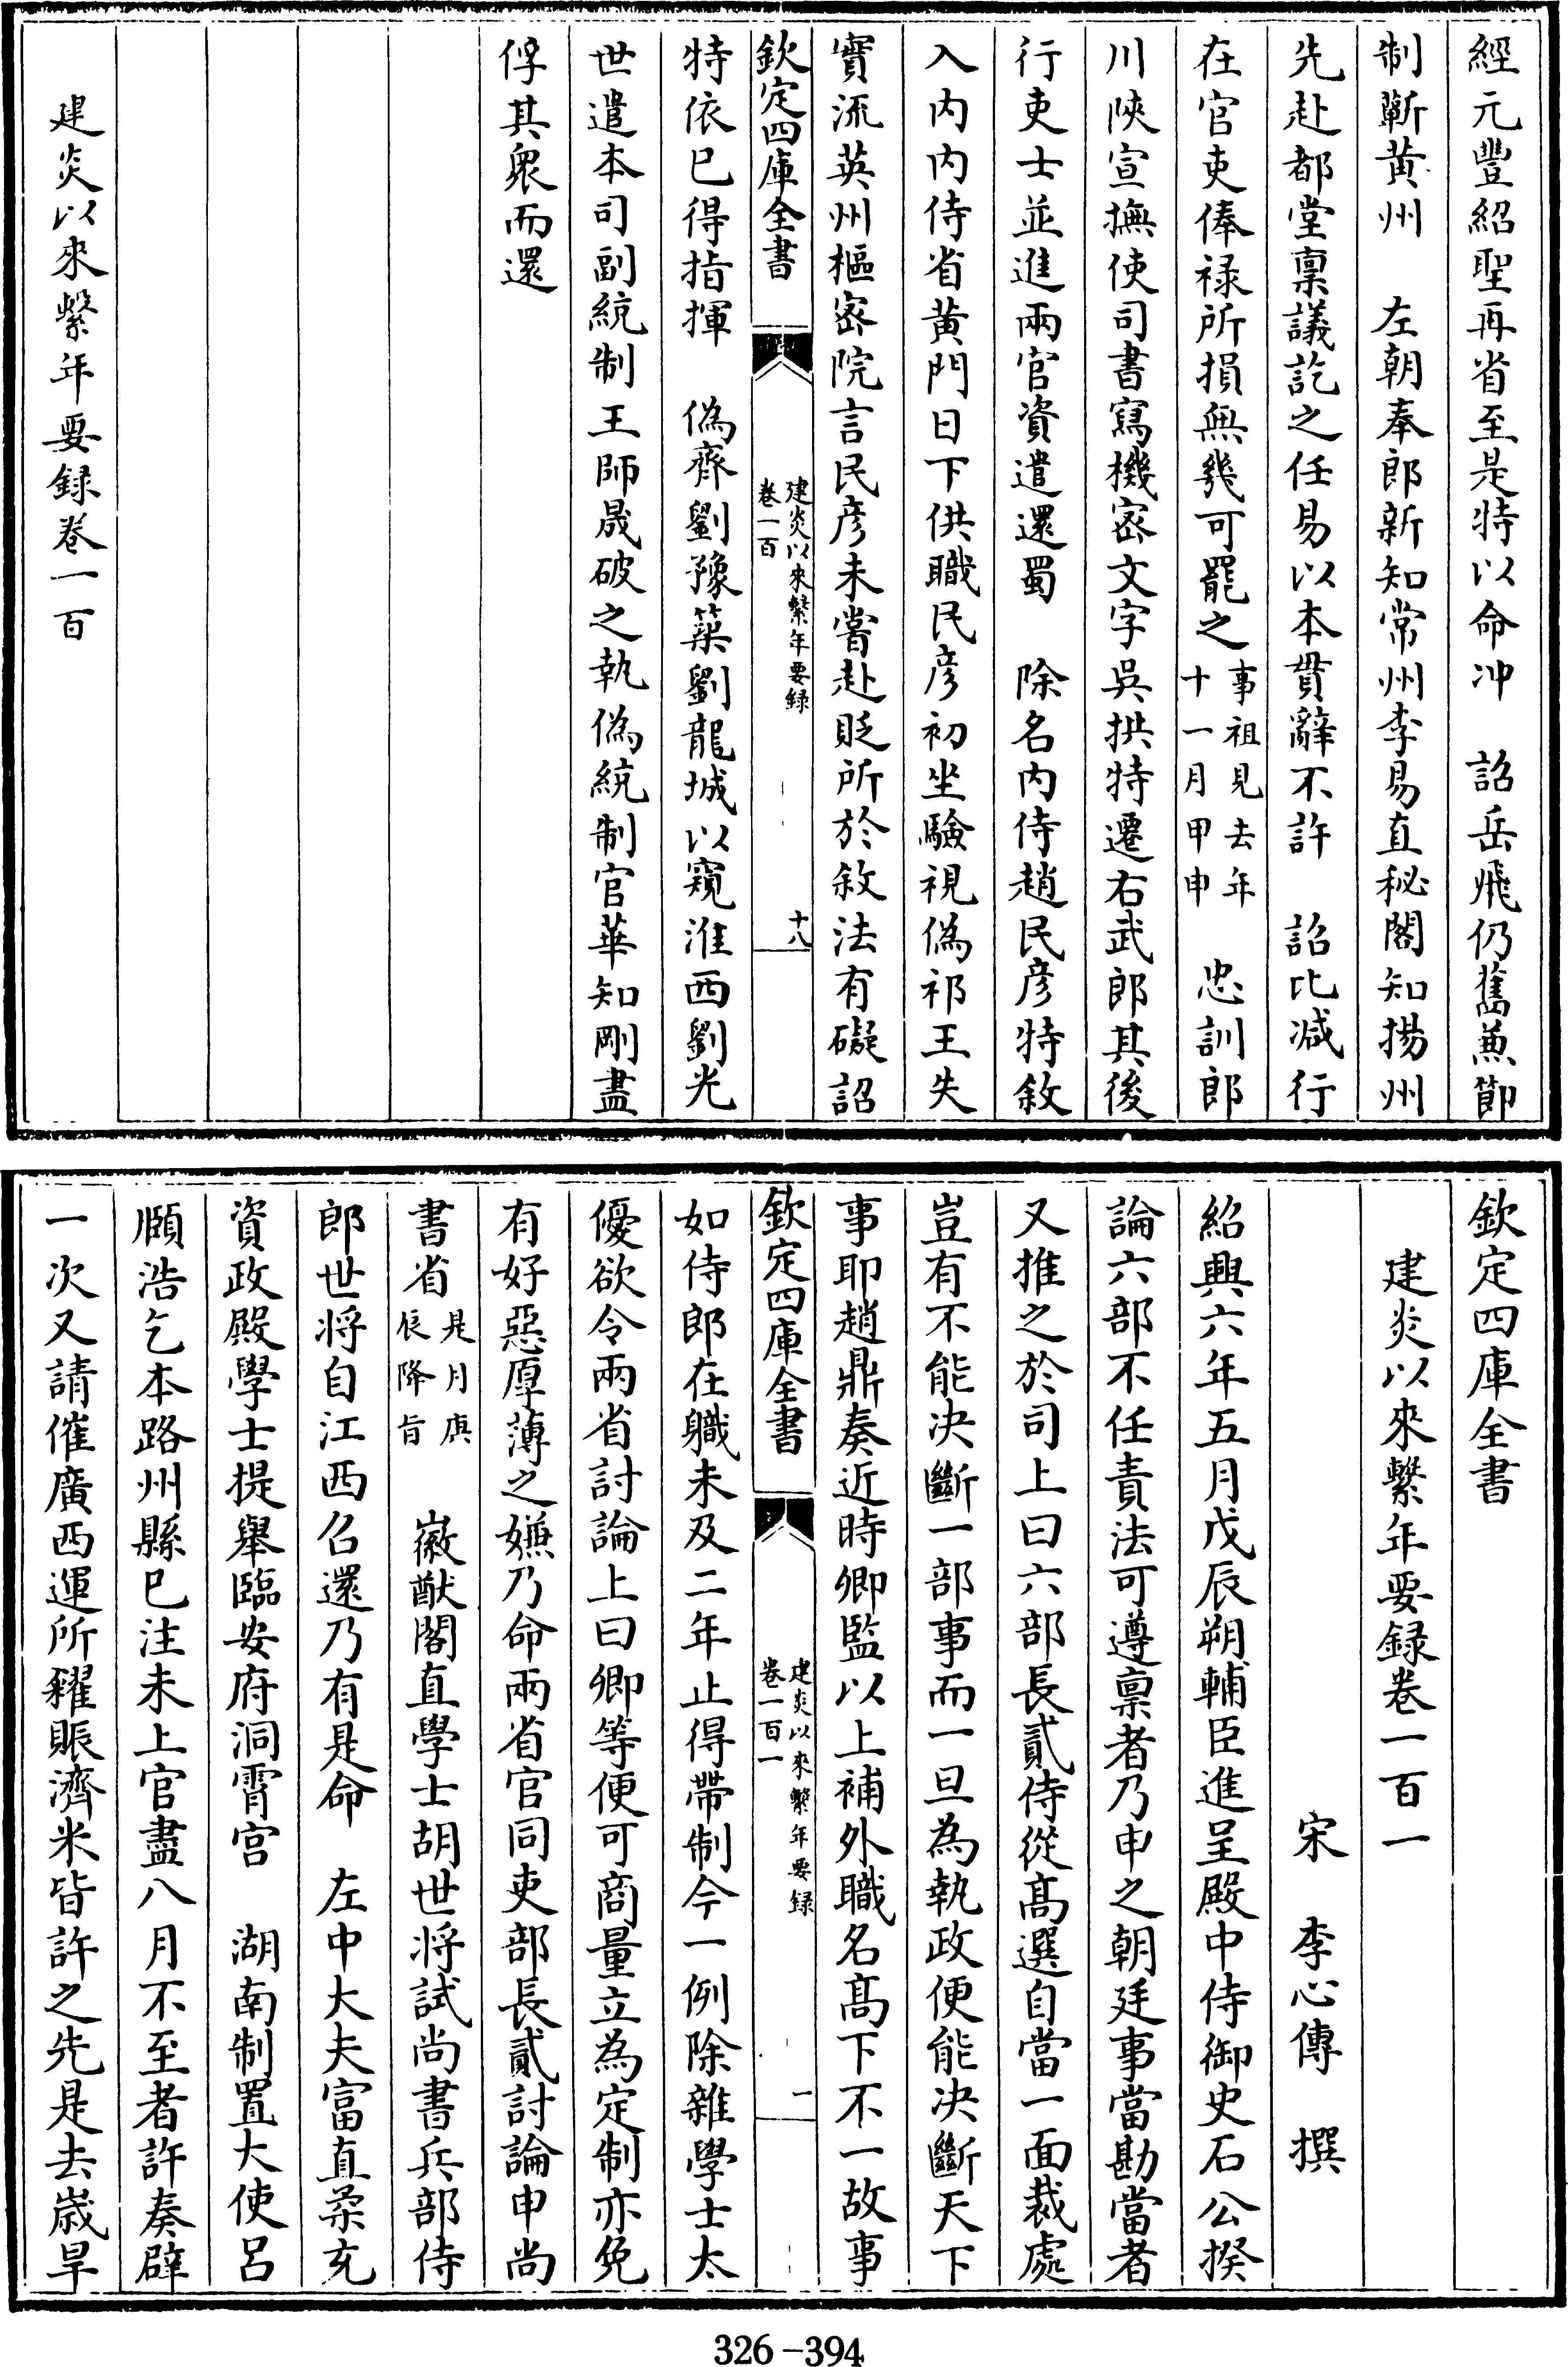 經元豐紹聖再省至是特以命冲　詔岳飛仍舊兼節
制蘄黄州　左朝奉郎新知常州李易直秘閣知揚州
先赴都堂禀議訖之任易以本貫辭不許　詔比减行
在官吏俸禄所損無幾可罷之事祖見去年十一月甲申　忠訓郎
川陜宣撫使司書寫機宻文字吳拱特遷右武郎其後
行吏士並進兩官資遣還蜀　除名内侍趙民彦特敘
入内内侍省黄門日下供職民彦初坐驗視偽祁王失
實流英州樞宻院言民彦未嘗赴貶所於敘法有礙詔
欽定四庫全書
建炎以來繫年要録
卷一百
十八
特依已得指揮　偽齊劉豫築劉龍城以窺淮西劉光
世遣本司副統制王師晟破之執偽統制官華知剛盡
俘其衆而還
建炎以來繫年要録卷一百
欽定四庫全書
建炎以來繫年要録卷一百一
宋　李心傳　撰
紹興六年五月戊辰朔輔臣進呈殿中侍御史石公揆
論六部不任責法可遵禀者乃申之朝廷事當勘當者
又推之於司上曰六部長貳侍從髙選自當一面裁處
豈有不能决斷一部事而一旦為執政便能决斷天下
事耶趙鼎奏近時卿監以上補外職名髙下不一故事
欽定四庫全書
建炎以來繫年要録
卷一百一
一
如侍郎在職未及二年止得帶制今一例除雜學士太
優欲令兩省討論上曰卿等便可商量立為定制亦免
有好惡厚薄之嫌乃命兩省官同吏部長貳討論申尚
書省是月庚辰降旨　徽猷閣直學士胡世将試尚書兵部侍
郎世将自江西召還乃有是命　左中大夫富直柔充
資政殿學士提舉臨安府洞霄宫　湖南制置大使呂
頤浩乞本路州縣已注未上官盡八月不至者許奏辟
一次又請催廣西運所糴賑濟米皆許之先是去嵗旱
326-394